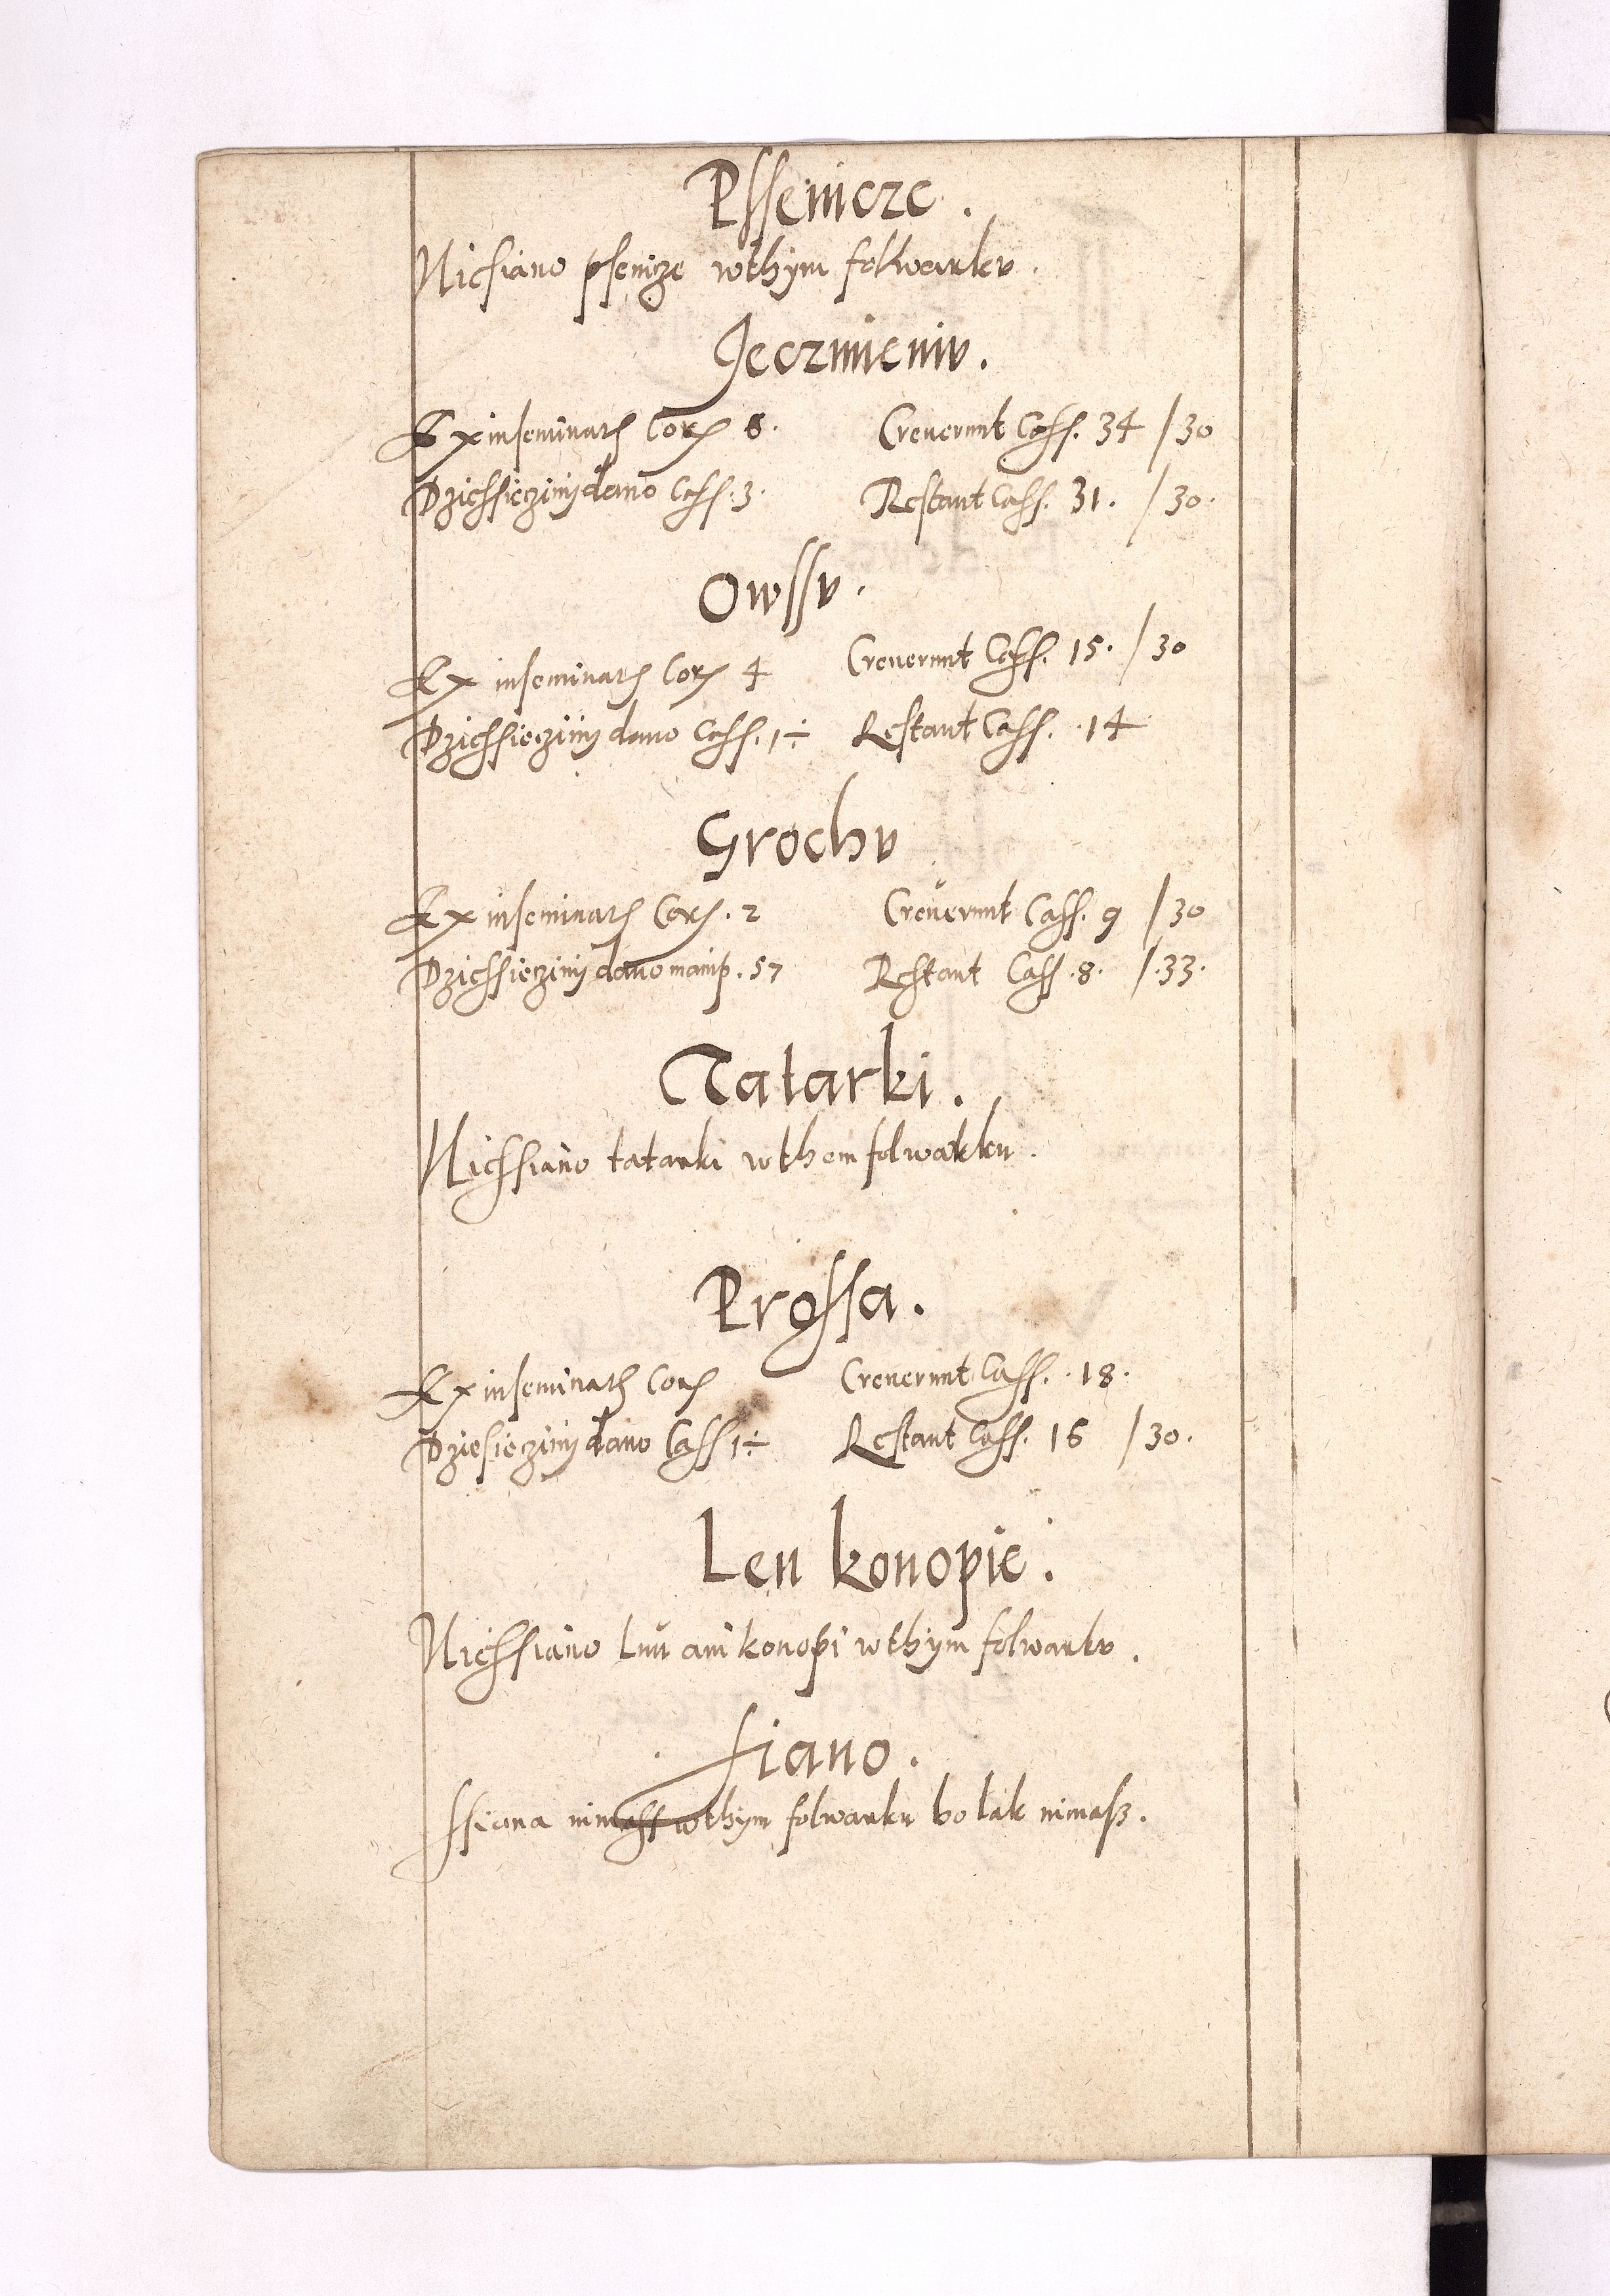 Psseniczc.
Nicsiano psenicze wthym folwarku.
Jeczmieniv.
Ex inseminatis Coris 6. Creuerunt Cass. 34 /30
Dziessiecziny dano Cass. 3. Restant Cass. 31. /30.
Owssv.
Ex inseminatis Coris 4 Creuerunt Cass. 15. /30
Dziessiecziny dano Cass. 1÷ Restant Cass. 14
Grochv
Ex inseminatis Coris. 2 Creuerunt Cass. 9 /30
Dziessiecziny dano manip. 57 Restant Cass. 8. /.33.
Tatarki.
Nicssiano tatarki wthem folwarku.
Prossa.
Ex inseminatis Coris Creuerunt Cass. 18.
Dziesiecziny dano Cass 1÷ Restant Cass. 16 /30.
Len konopie.
Nicssiano lnu ani konopi wthym folwarkv.
siano.
Ssiana nimass wthym folwarku bo lak nimasz.